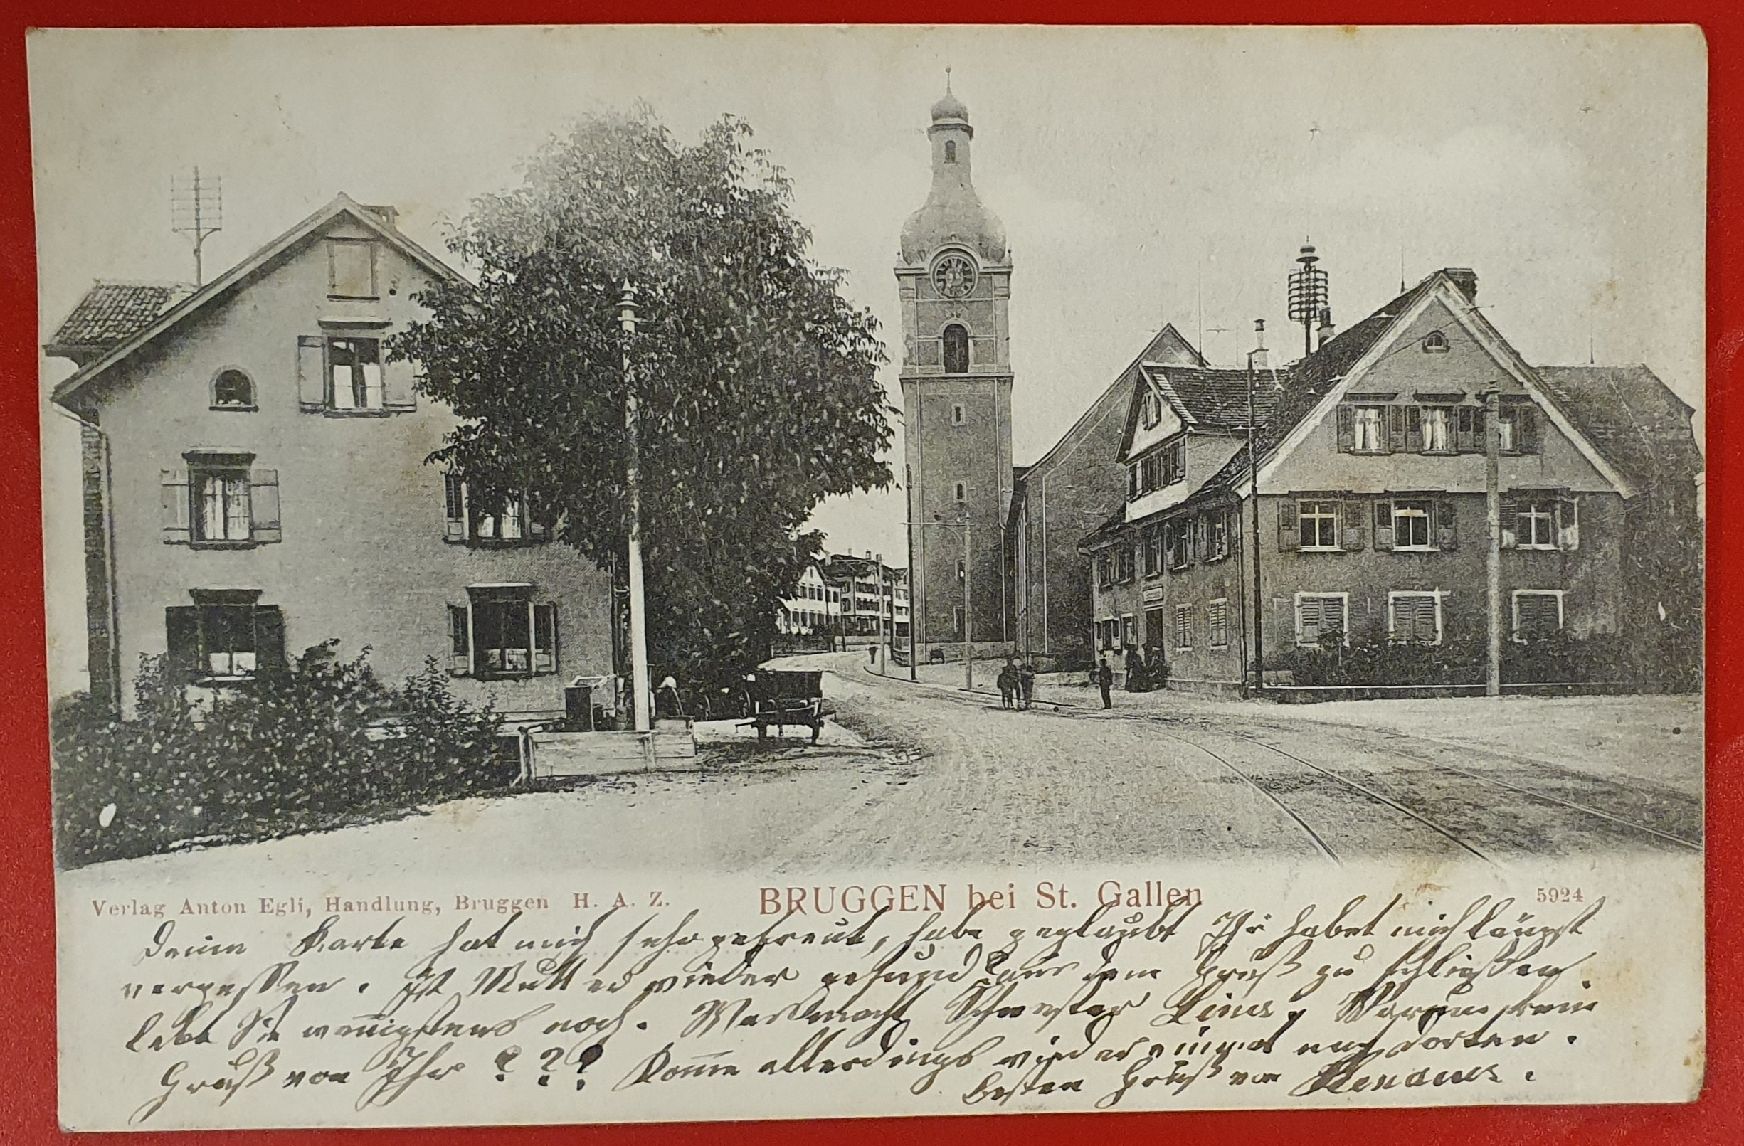 Verlag Anton Egli, Handlung, Bruggen H. A. Z. BRUGGEN bei St. Gallen 5924
Deine Karte hat mich sehr gefreut, habe geglaubt Ihr habet mich längst
vergessen. Ist Mutter wieder gesund aus dem Gruß zu schließen
lebt Sie wenigstens noch. Was macht Schwester Lina, Warum kein
Gruß von Ihr ??? Komme allerdings wieder einmal nach dorten.
besten Gruß von